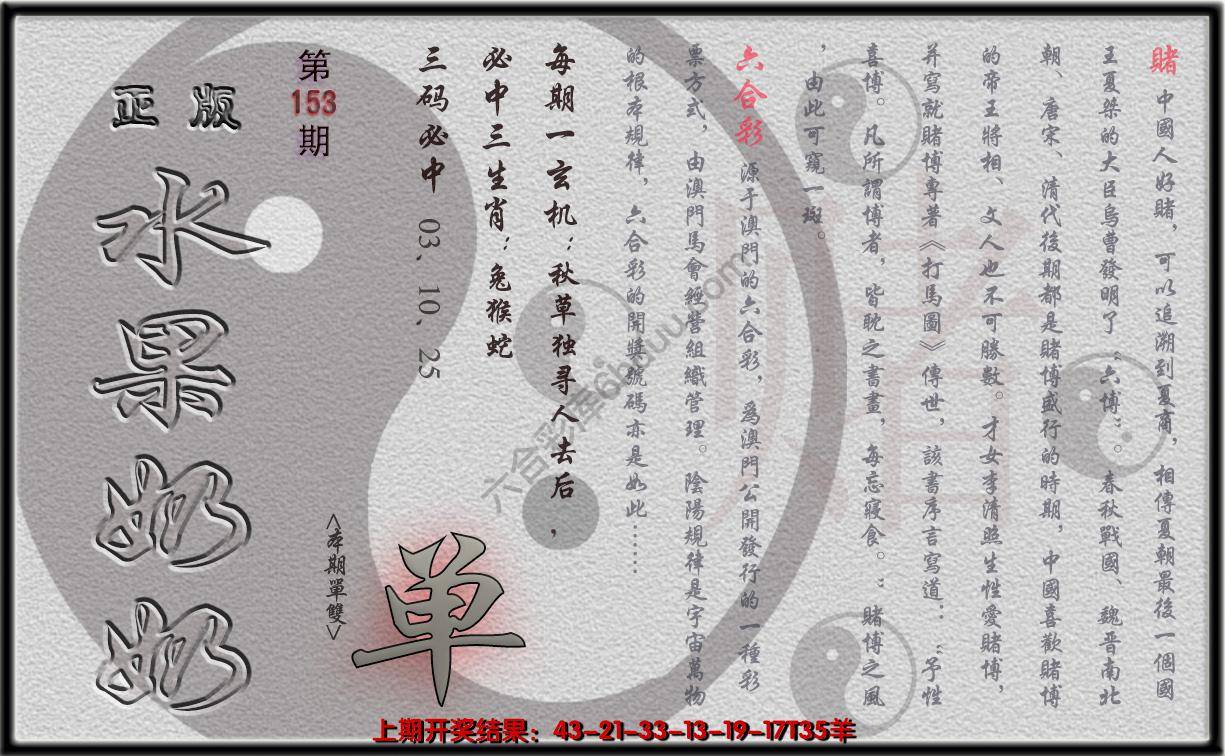 賭 中國人好賭，可以追溯到夏商，相傳夏朝最後一個國
王夏桀的大臣烏曹發明了“六博”。春秋戰國、魏晋南北
朝、唐宋、清代後期都是賭博盛行的時期，中國喜歡賭博
的帝王將相、文人也不可勝數。才女李清照生性愛賭博，
并寫就賭博專著《打馬圖》傳世，該書序言寫道：“予性
喜博。凡所謂博者，皆耽之書畫，每忘寢食。”賭博之風
，由此可窺一斑。
六合彩 源于澳門的六合彩，爲澳門公開發行的一種彩
票方式，由澳門馬會經營組織管理。陰陽規律是宇宙萬物
的根本規律，六合彩的開獎號碼亦是如此……
每期一玄机：秋草独寻人去后，
必中三生肖：兔猴蛇
三码必中 03、10、25
第
153
期
正版
水果奶奶
<本期單雙>
单
賭
六合彩库6huuu.com
上期开奖结果：43-21-33-13-19-17T35羊